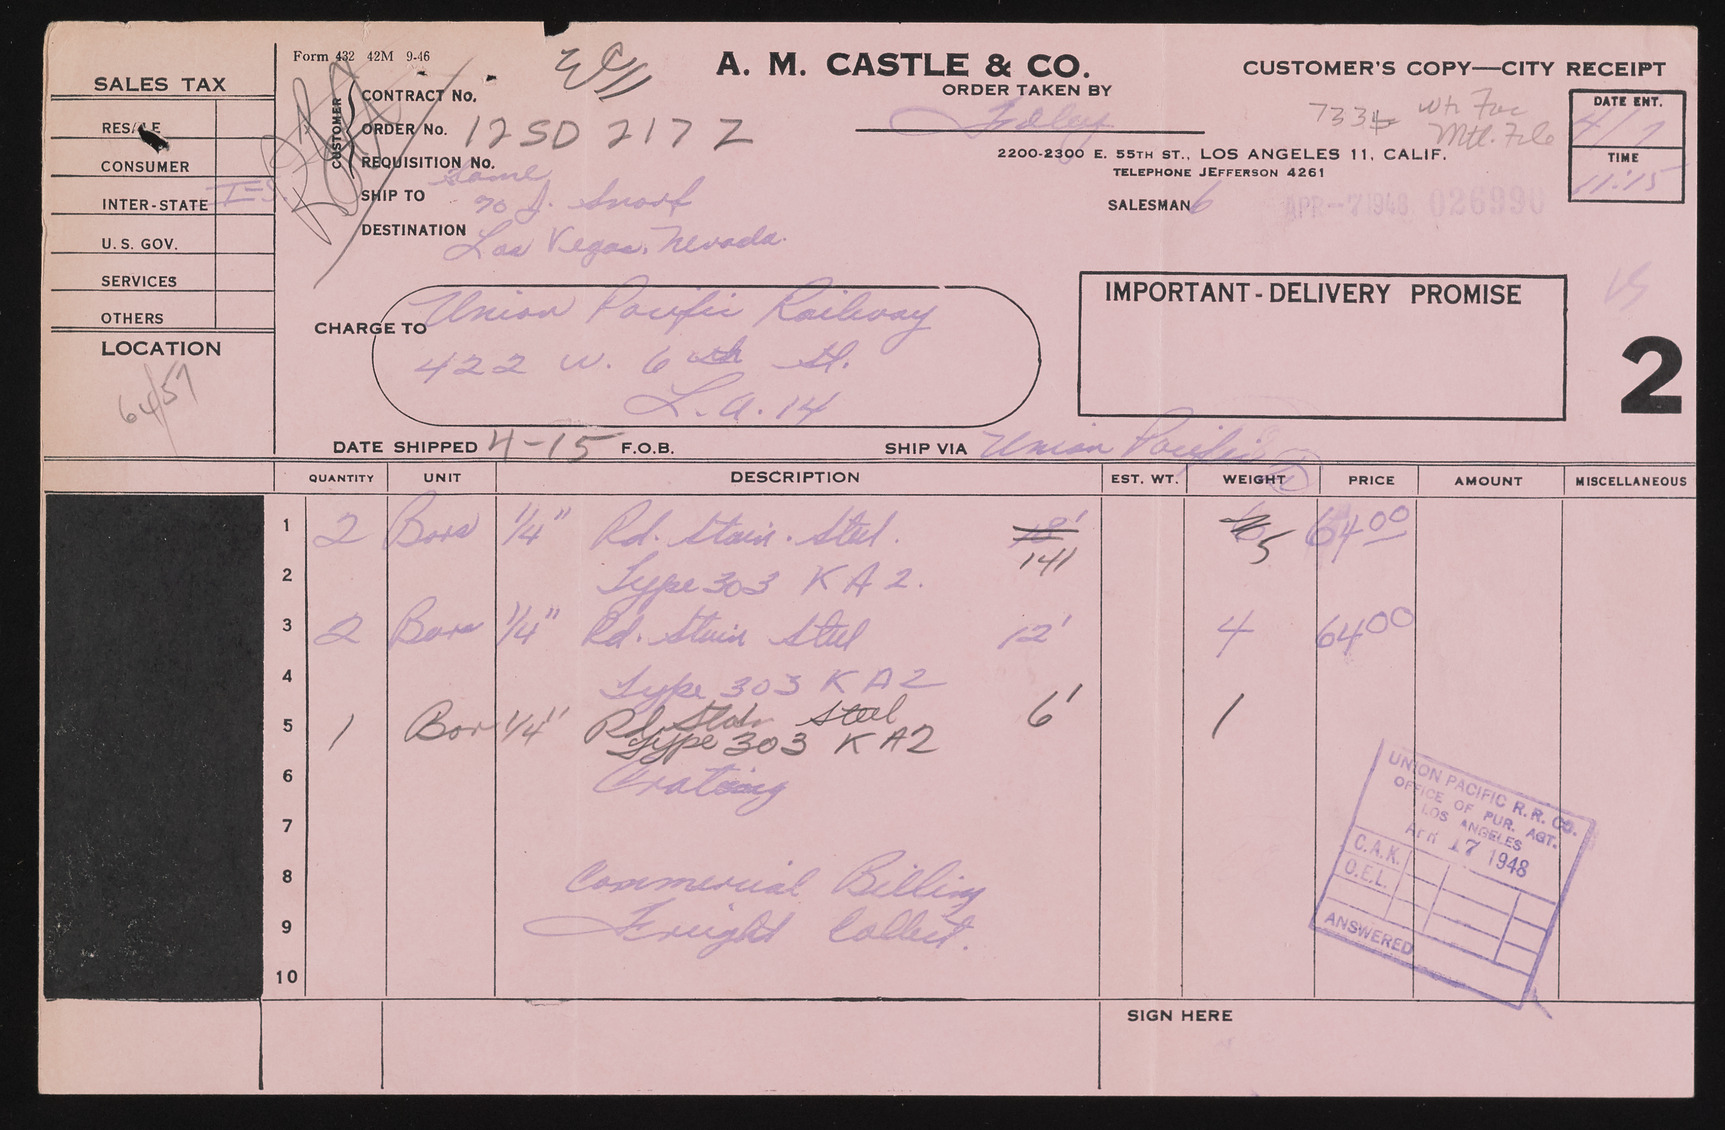 Form 432 42M 9-46
A. M. CASTLE & CO.
CUSTOMER'S COPY—CITY RECEIPT
ORDER TAKEN BY
Foley
7334
Mtl. File
DATE ENT.
4/7
TIME
11:15
2200-2300 E. 55TH ST., LOS ANGELES 11, CALIF.
TELEPHONE JEFFERSON 4261
SALESMAN 6
APR -7 1948 026990
SALES TAX
RESALE
CONSUMER
INTER-STATE I-S.
U. S. GOV.
SERVICES
OTHERS
LOCATION
64/57
CUSTOMER
CONTRACT No.
ORDER No. 12SD 217 Z
REQUISITION No.
SHIP TO Same
% J. Snorf
DESTINATION Las Vegas, Nevada.
CHARGE TO Union Pacific Railway
422 W. 6th St.
L.A. 14
IMPORTANT-DELIVERY PROMISE
2
DATE SHIPPED 4-15 F.O.B. SHIP VIA Union Pacific
QUANTITY UNIT DESCRIPTION EST. WT. WEIGHT PRICE AMOUNT MISCELLANEOUS
1 2 Bars 1/4" Rd. Stain. Steel. 12' 5 64 00
2 Type 303 K A 2. 141
3 2 Bars 1/4" Rd. Stain Steel 12' 4 64 00
4 Type 303 K A 2
5 1 Bar 1/4" Rd. Stain Steel 6' 1
Type 303 K A2
6 Crating
7
8 Commercial Billing
9 Freight Collect.
10
UNION PACIFIC R. R. CO.
OFFICE OF PUR. AGT.
LOS ANGELES
APR 17 1948
C.A.K.
O.E.L.
ANSWERED
SIGN HERE